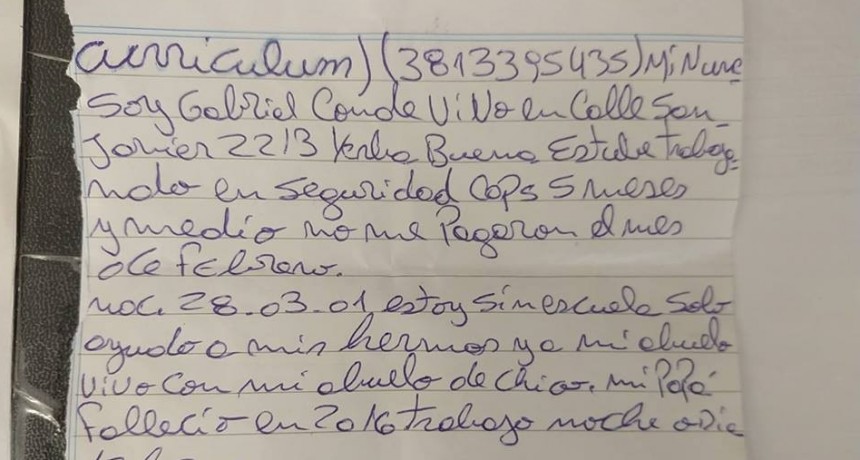 curriculum) (3813395435) Mi Nume
Soy Gabriel Conde Vivo en Calle San
Javier 2213 Yerba Buena Estube trabaja-
ndo en seguridad Cops 5 meses
y medio no me Pagaron el mes
de febrero.
nac. 28.03.01 estoy sin escuela solo
ayudo a mis hermos y a mi abuelo
vivo con mi abuelo de chico. mi Papá
fallecio en 2016 trabajo noche o dia